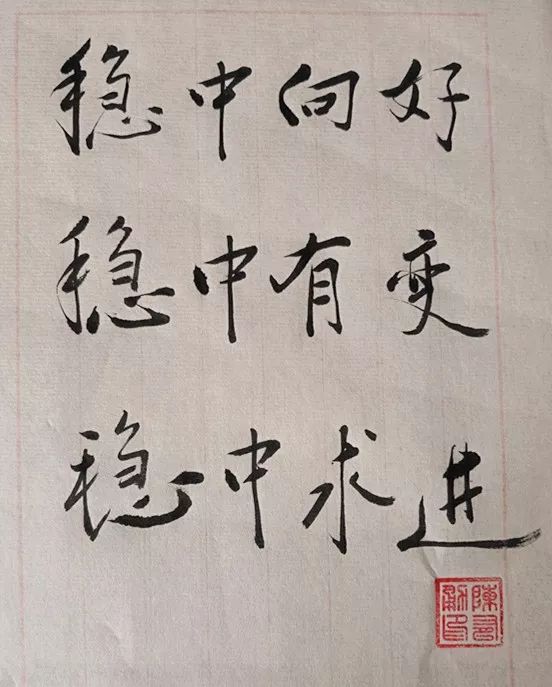 稳中向好
稳中有变
稳中求进